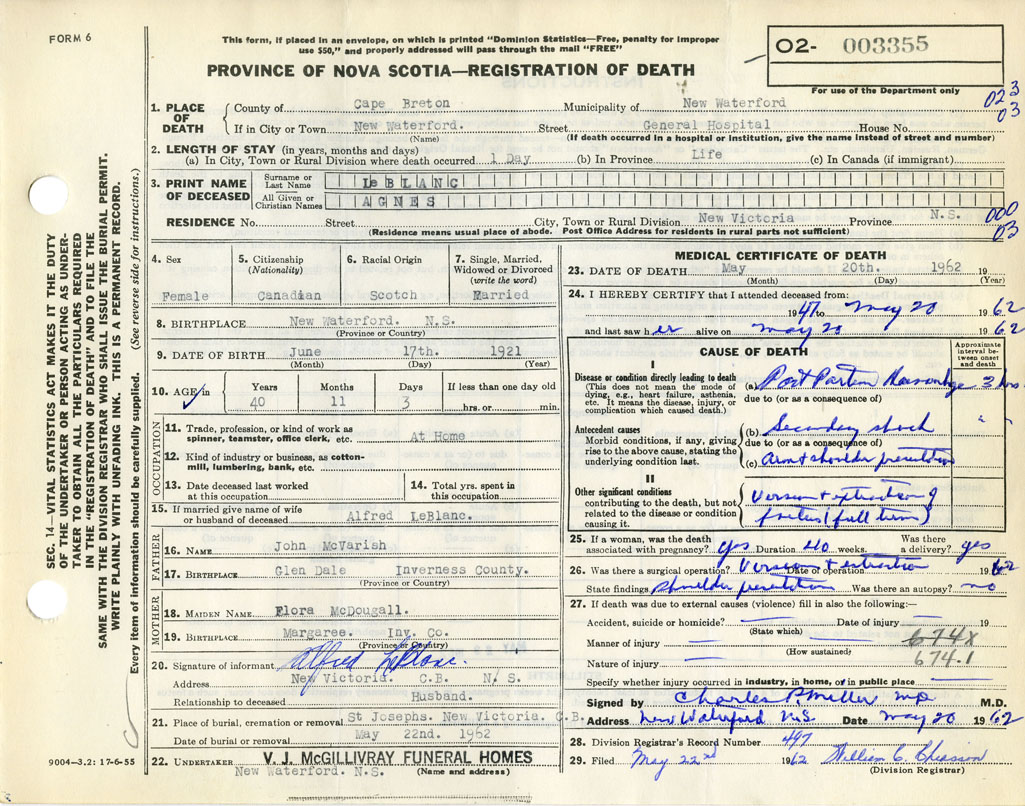 FORM 6
This form, if placed in an envelope, on which is printed "Dominion Statistics—Free, penalty for improper
use $50," and properly addressed will pass through the mail "FREE"
PROVINCE OF NOVA SCOTIA—REGISTRATION OF DEATH
02- 003355
For use of the Department only
023
03
1. PLACE OF DEATH
County of Cape Breton Municipality of New Waterford
If in City or Town New Waterford. Street General Hospital House No.
(Name) (If death occurred in a hospital or institution, give the name instead of street and number)
2. LENGTH OF STAY (in years, months and days)
(a) In City, Town or Rural Division where death occurred 1 Day (b) In Province Life (c) In Canada (if immigrant)
3. PRINT NAME OF DECEASED
Surname or Last Name LeBLANC
All Given or Christian Names AGNES
RESIDENCE No. Street City, Town or Rural Division New Victoria Province N.S.
(Residence means usual place of abode. Post Office Address for residents in rural parts not sufficient)
000
03
SEC. 14—VITAL STATISTICS ACT MAKES IT THE DUTY
OF THE UNDERTAKER OR PERSON ACTING AS UNDER-
TAKER TO OBTAIN ALL THE PARTICULARS REQUIRED
IN THE "REGISTRATION OF DEATH" AND TO FILE THE
SAME WITH THE DIVISION REGISTRAR WHO SHALL ISSUE THE BURIAL PERMIT.
WRITE PLAINLY WITH UNFADING INK. THIS IS A PERMANENT RECORD.
Every item of information should be carefully supplied. (See reverse side for instructions.)
4. Sex
Female
5. Citizenship
(Nationality)
Canadian
6. Racial Origin
Scotch
7. Single, Married,
Widowed or Divorced
(write the word)
Married
8. BIRTHPLACE New Waterford. N.S.
(Province or Country)
9. DATE OF BIRTH June 17th. 1921
(Month) (Day) (Year)
10. AGE in
Years Months Days If less than one day old
40 11 3 hrs. or min.
OCCUPATION
11. Trade, profession, or kind of work as
spinner, teamster, office clerk, etc. At Home
12. Kind of industry or business, as cotton-
mill, lumbering, bank, etc.
13. Date deceased last worked
at this occupation
14. Total yrs. spent in
this occupation
15. If married give name of wife
or husband of deceased Alfred LeBlanc.
FATHER
16. NAME John McVarish
17. BIRTHPLACE Glen Dale Inverness County.
(Province or Country)
MOTHER
18. MAIDEN NAME Flora McDougall.
19. BIRTHPLACE Margaree. Inv. Co.
(Province or Country)
20. Signature of informant Alfred LeBlanc.
Address New Victoria. C.B. N.S.
Relationship to deceased Husband.
21. Place of burial, cremation or removal St Josephs. New Victoria. C.B.
Date of burial or removal May 22nd. 1962
22. UNDERTAKER V. J. McGILLIVRAY FUNERAL HOMES
New Waterford. N.S. (Name and address)
9004—3.2: 17-6-55
MEDICAL CERTIFICATE OF DEATH
23. DATE OF DEATH May 20th. 1962 19
(Month) (Day) (Year)
24. I HEREBY CERTIFY that I attended deceased from:
1947 to May 20 1962
and last saw her alive on May 20 1962
CAUSE OF DEATH
Approximate
interval be-
tween onset
and death
I
Disease or condition directly leading to death
(This does not mean the mode of
dying, e.g., heart failure, asthenia,
etc. It means the disease, injury, or
complication which caused death.)
(a) Post Partem Heamorhage 3 hrs
due to (or as a consequence of)
Antecedent causes
Morbid conditions, if any, giving
rise to the above cause, stating the
underlying condition last.
(b) Secondary shock "
due to (or as a consequence of)
(c) arm + shoulder presentation
II
Other significant conditions
contributing to the death, but not
related to the disease or condition
causing it.
Version + extraction of
foetus (full term)
25. If a woman, was the death
associated with pregnancy? yes Duration 40 weeks. Was there
a delivery? yes
26. Was there a surgical operation? Version + extraction Date of operation 1962
State findings shoulder presentation Was there an autopsy? no
27. If death was due to external causes (violence) fill in also the following:—
Accident, suicide or homicide? — Date of injury — 19
(State which)
Manner of injury — 674X
(How sustained)
Nature of injury — 674.1
Specify whether injury occurred in industry, in home, or in public place —
Signed by Charles P. Miller MD M.D.
Address New Waterford N.S. Date May 20 1962
28. Division Registrar's Record Number 497
29. Filed May 22nd 1962 William C. Chiasson
(Division Registrar)